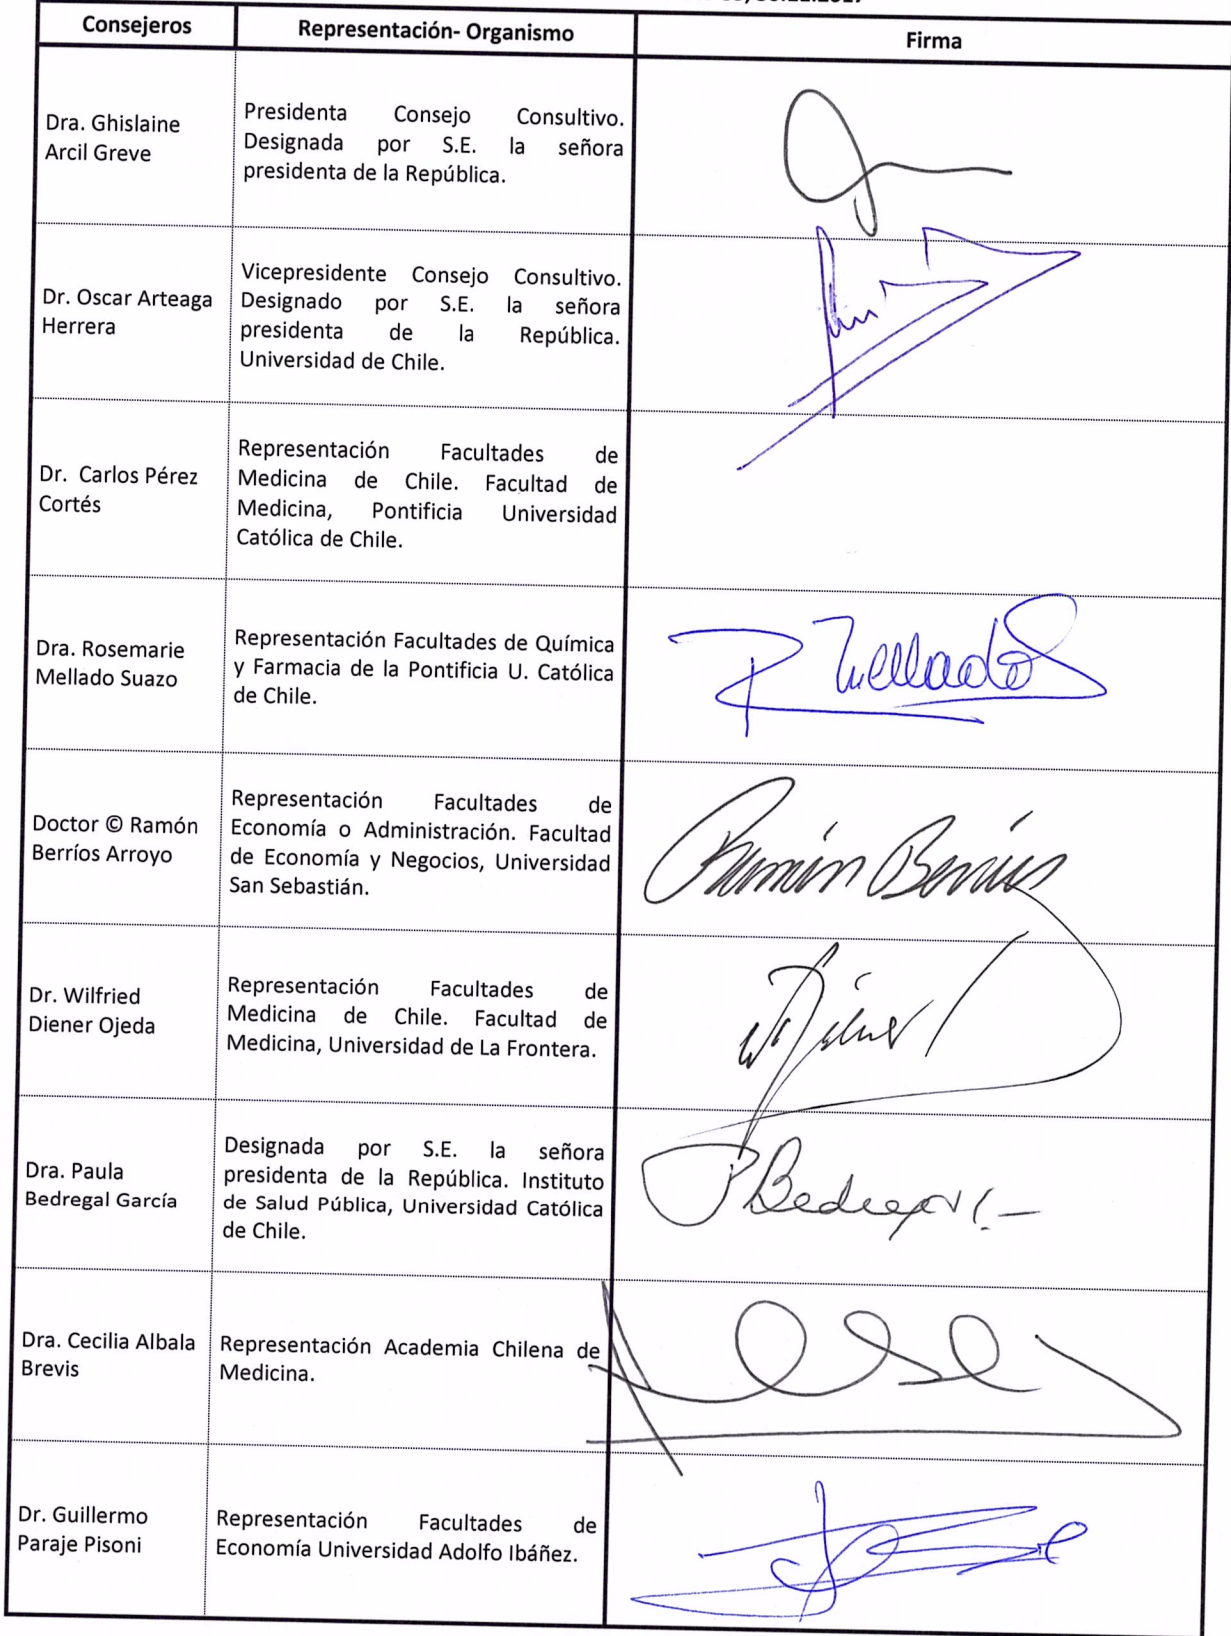 Consejeros
Representación- Organismo
Firma
Dra. Ghislaine
Arcil Greve
Presidenta Consejo Consultivo.
Designada por S.E. la señora
presidenta de la República.
Dr. Oscar Arteaga
Herrera
Vicepresidente Consejo Consultivo.
Designado por S.E. la señora
presidenta de la República.
Universidad de Chile.
Dr. Carlos Pérez
Cortés
Representación Facultades de
Medicina de Chile. Facultad de
Medicina, Pontificia Universidad
Católica de Chile.
Dra. Rosemarie
Mellado Suazo
Representación Facultades de Química
y Farmacia de la Pontificia U. Católica
de Chile.
R Mellado S
Doctor © Ramón
Berríos Arroyo
Representación Facultades de
Economía o Administración. Facultad
de Economía y Negocios, Universidad
San Sebastián.
Ramón Berríos
Dr. Wilfried
Diener Ojeda
Representación Facultades de
Medicina de Chile. Facultad de
Medicina, Universidad de La Frontera.
W Diener
Dra. Paula
Bedregal García
Designada por S.E. la señora
presidenta de la República. Instituto
de Salud Pública, Universidad Católica
de Chile.
P Bedregal
Dra. Cecilia Albala
Brevis
Representación Academia Chilena de
Medicina.
Dr. Guillermo
Paraje Pisoni
Representación Facultades de
Economía Universidad Adolfo Ibáñez.